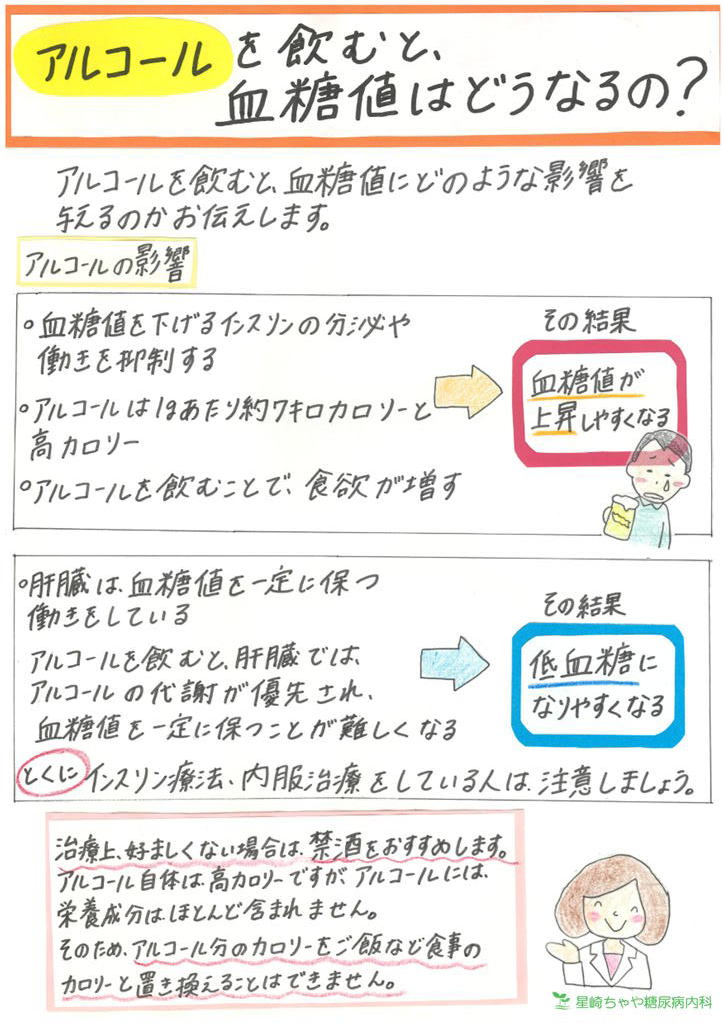 アルコールを飲むと、
血糖値はどうなるの?
アルコールを飲むと、血糖値にどのような影響を
与えるのかお伝えします。
アルコールの影響
○血糖値を下げるインスリンの分泌や
働きを抑制する
○アルコールは1gあたり約7キロカロリーと
高カロリー
○アルコールを飲むことで、食欲が増す
その結果
血糖値が
上昇しやすくなる
○肝臓は、血糖値を一定に保つ
働きをしている
アルコールを飲むと、肝臓では、
アルコールの代謝が優先され、
血糖値を一定に保つことが難しくなる
その結果
低血糖に
なりやすくなる
とくに インスリン療法、内服治療をしている人は、注意しましょう。
治療上、好ましくない場合は、禁酒をおすすめします。
アルコール自体は、高カロリーですが、アルコールには、
栄養成分は、ほとんど含まれません。
そのため、アルコール分のカロリーをご飯など食事の
カロリーと置き換えることはできません。
星崎ちゃや糖尿病内科